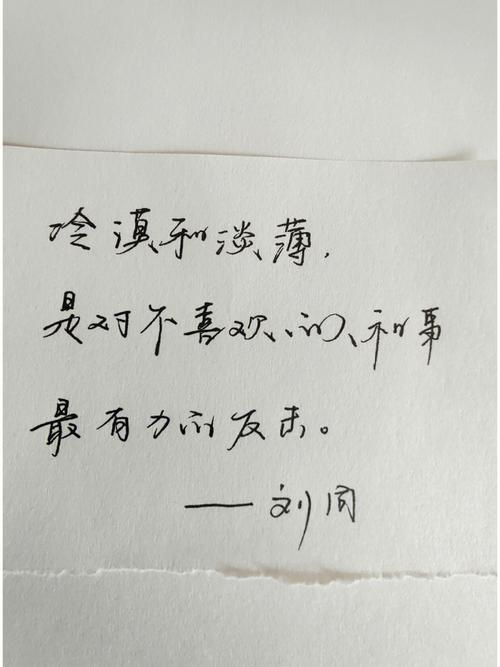 冷漠和淡薄,
是对不喜欢的人和事
最有力的反击。
——刘同